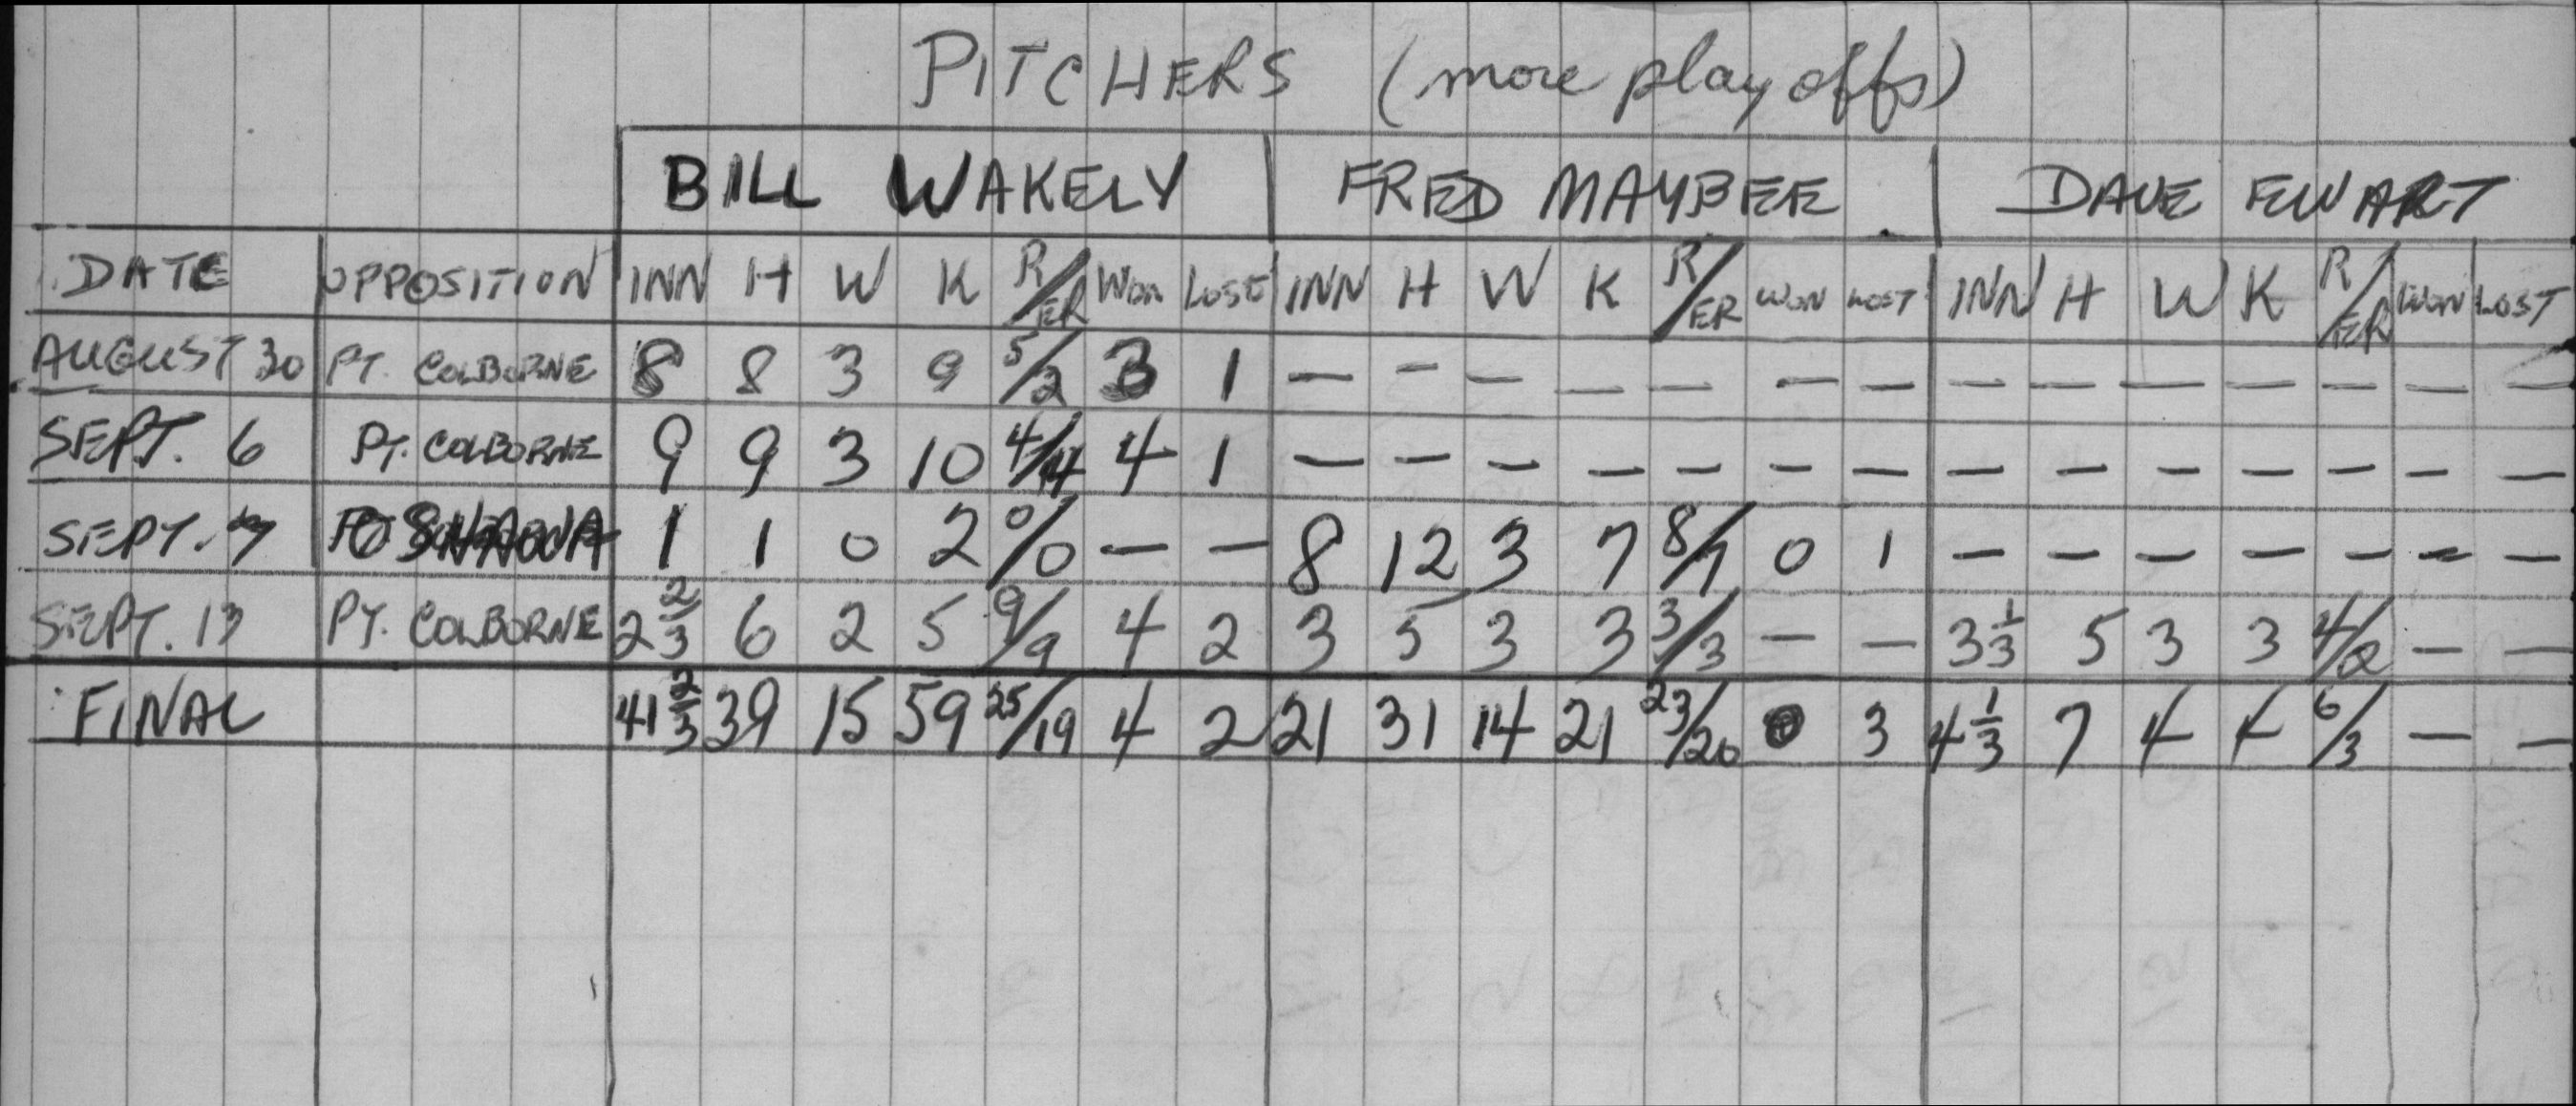 PITCHERS (more play offs)
BILL WAKELY FRED MAYBEE DAVE EWART
DATE OPPOSITION INN H W K R/ER WON LOST INN H W K R/ER WON LOST INN H W K R/ER WON LOST
AUGUST 30 PT. COLBORNE 8 8 3 9 5/2 3 1 — — — — — — — — — — — — — —
SEPT. 6 PT. COLBORNE 9 9 3 10 4/4 4 1 — — — — — — — — — — — — — —
SEPT. 7 OSHAWA 1 1 0 2 0/0 — — 8 12 3 7 8/7 0 1 — — — — — — —
SEPT. 13 PT. COLBORNE 2 2/3 6 2 5 9/9 4 2 3 5 3 3 3/3 — — 3 1/3 5 3 3 4/2 — —
FINAL 41 2/3 39 15 59 25/19 4 2 21 31 14 21 23/20 0 3 4 1/3 7 4 4 6/3 — —